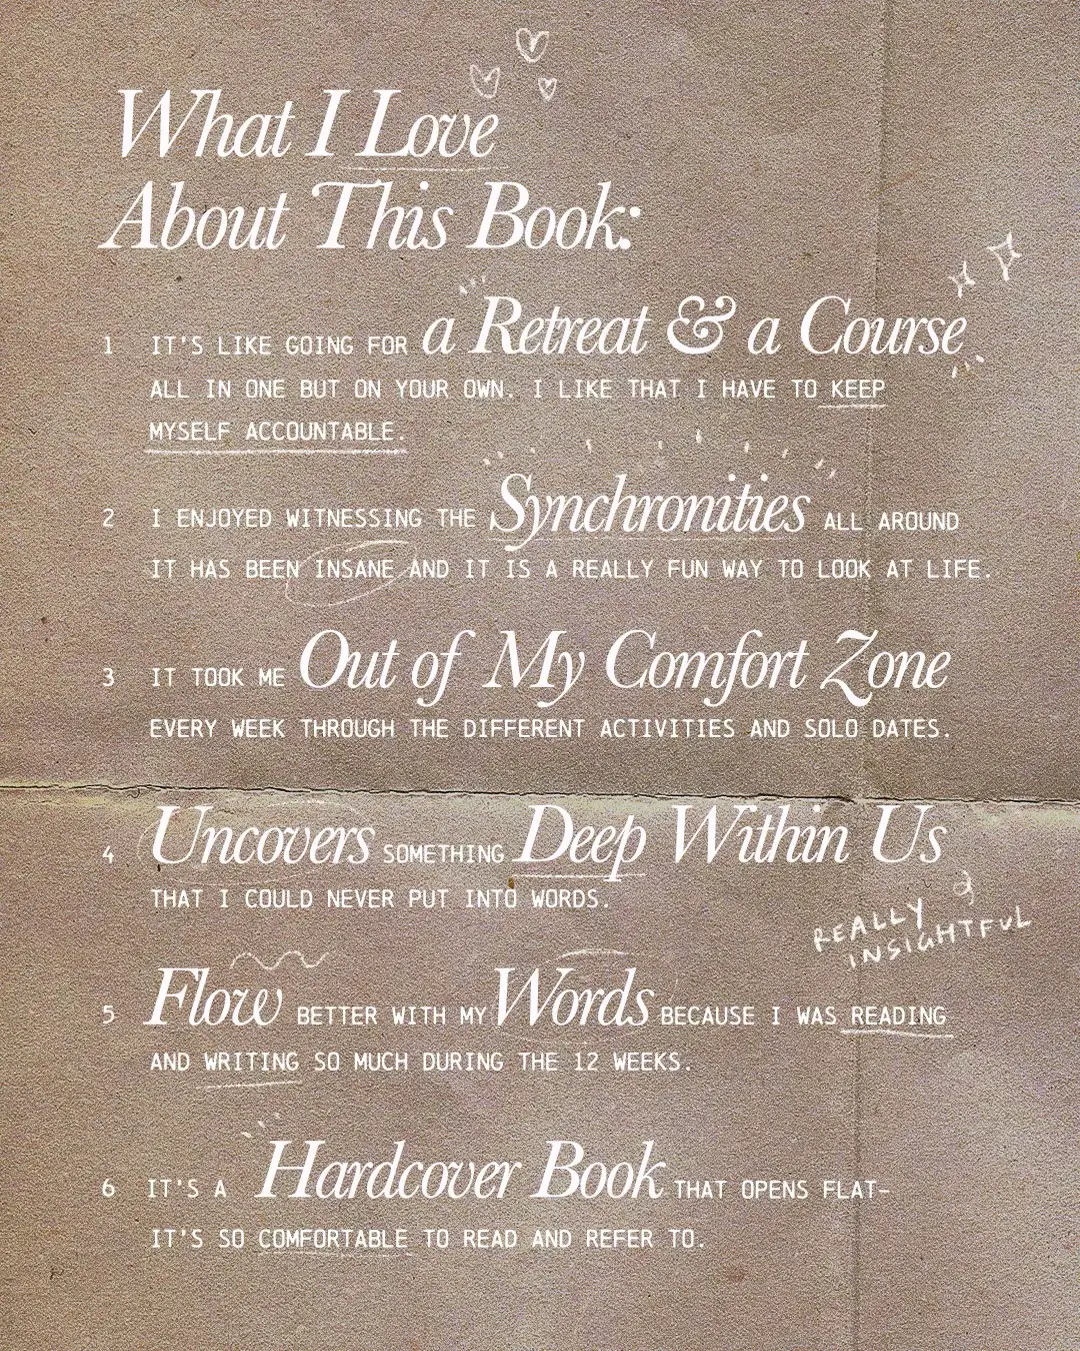 What I Love
About This Book:
1 IT'S LIKE GOING FOR a Retreat & a Course
ALL IN ONE BUT ON YOUR OWN. I LIKE THAT I HAVE TO KEEP
MYSELF ACCOUNTABLE.
2 I ENJOYED WITNESSING THE Synchronities ALL AROUND
IT HAS BEEN INSANE AND IT IS A REALLY FUN WAY TO LOOK AT LIFE.
3 IT TOOK ME Out of My Comfort Zone
EVERY WEEK THROUGH THE DIFFERENT ACTIVITIES AND SOLO DATES.
4 Uncovers SOMETHING Deep Within Us
THAT I COULD NEVER PUT INTO WORDS.
REALLY
INSIGHTFUL
5 Flow BETTER WITH MY Words BECAUSE I WAS READING
AND WRITING SO MUCH DURING THE 12 WEEKS.
6 IT'S A Hardcover Book THAT OPENS FLAT-
IT'S SO COMFORTABLE TO READ AND REFER TO.